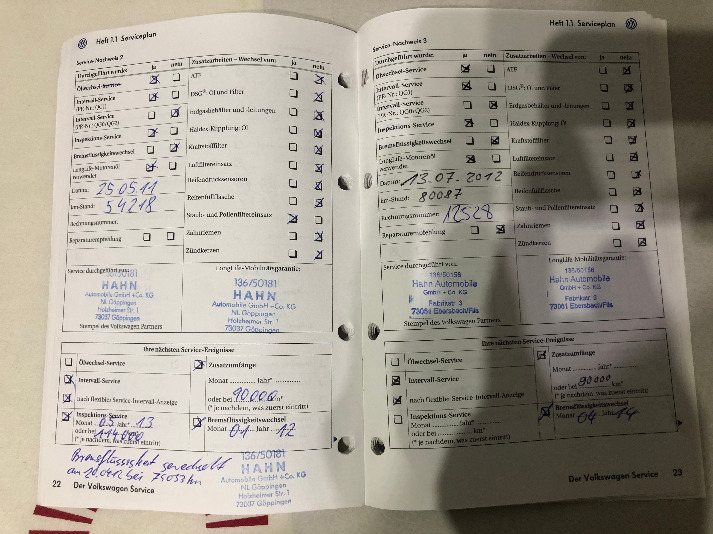 Heft 1.1 Serviceplan
Service-Nachweis 2
Durchgeführt wurde: ja nein
Ölwechsel-Service
Intervall-Service
(PR-Nr.: QG1)
Intervall-Service
(PR-Nr.: QG0/QG2)
Inspektions-Service
Bremsflüssigkeitswechsel
Longlife-Motorenöl
verwendet
Datum: 25.05.11
km-Stand: 54218
Rechnungsnummer:
Reparaturempfehlung
Zusatzarbeiten – Wechsel von: ja nein
ATF
DSG®-Öl und Filter
Erdgasbehälter und -leitungen
Haldex-Kupplung: Öl
Kraftstofffilter
Luftfiltereinsatz
Reifendrucksensoren
Reifenfüllflasche
Staub- und Pollenfiltereinsatz
Zahnriemen
Zündkerzen
Service durchgeführt von:
136/50181
HAHN
Automobile GmbH + Co. KG
NL Göppingen
Holzheimer Str. 1
73037 Göppingen
Stempel des Volkswagen Partners
Longlife-Mobilitätsgarantie:
136/50181
HAHN
Automobile GmbH + Co. KG
NL Göppingen
Holzheimer Str. 1
73037 Göppingen
Ihre nächsten Service-Ereignisse
Ölwechsel-Service
Intervall-Service
nach flexibler Service-Intervall-Anzeige
Inspektions-Service
Monat 05 Jahr 13
oder bei 114000
(* je nachdem, was zuerst eintritt)
Zusatzumfänge
Monat Jahr*
oder bei 90000 km*
(* je nachdem, was zuerst eintritt)
Bremsflüssigkeitswechsel
Monat 01 Jahr 12
Bremsflüssigkeit gewechselt
136/50181
HAHN
Automobile GmbH + Co. KG
NL Göppingen
Holzheimer Str. 1
73037 Göppingen
22 Der Volkswagen Service
Heft 1.1 Serviceplan
Service-Nachweis 3
Durchgeführt wurde: ja nein
Ölwechsel-Service
Intervall-Service
(PR-Nr.: QG1)
Intervall-Service
(PR-Nr.: QG0/QG2)
Inspektions-Service
Bremsflüssigkeitswechsel
Longlife-Motorenöl
verwendet
Datum: 13.07.2012
km-Stand: 80087
Rechnungsnummer: 12528
Reparaturempfehlung
Zusatzarbeiten – Wechsel von: ja nein
ATF
DSG®-Öl und Filter
Erdgasbehälter und -leitungen
Haldex-Kupplung: Öl
Kraftstofffilter
Luftfiltereinsatz
Reifendrucksensoren
Reifenfüllflasche
Staub- und Pollenfiltereinsatz
Zahnriemen
Zündkerzen
Service durchgeführt von:
136/50158
Hahn Automobile
GmbH + Co. KG
Fabrikstr. 3
73061 Ebersbach/Fils
Stempel des Volkswagen Partners
Longlife-Mobilitätsgarantie:
136/50158
Hahn Automobile
GmbH + Co. KG
Fabrikstr. 3
73061 Ebersbach/Fils
Ihre nächsten Service-Ereignisse
Ölwechsel-Service
Intervall-Service
nach flexibler Service-Intervall-Anzeige
Inspektions-Service
Monat Jahr
oder bei
(* je nachdem, was zuerst eintritt)
Zusatzumfänge
Monat Jahr*
oder bei 90000 km*
(* je nachdem, was zuerst eintritt)
Bremsflüssigkeitswechsel
Monat 04 Jahr 14
Der Volkswagen Service 23